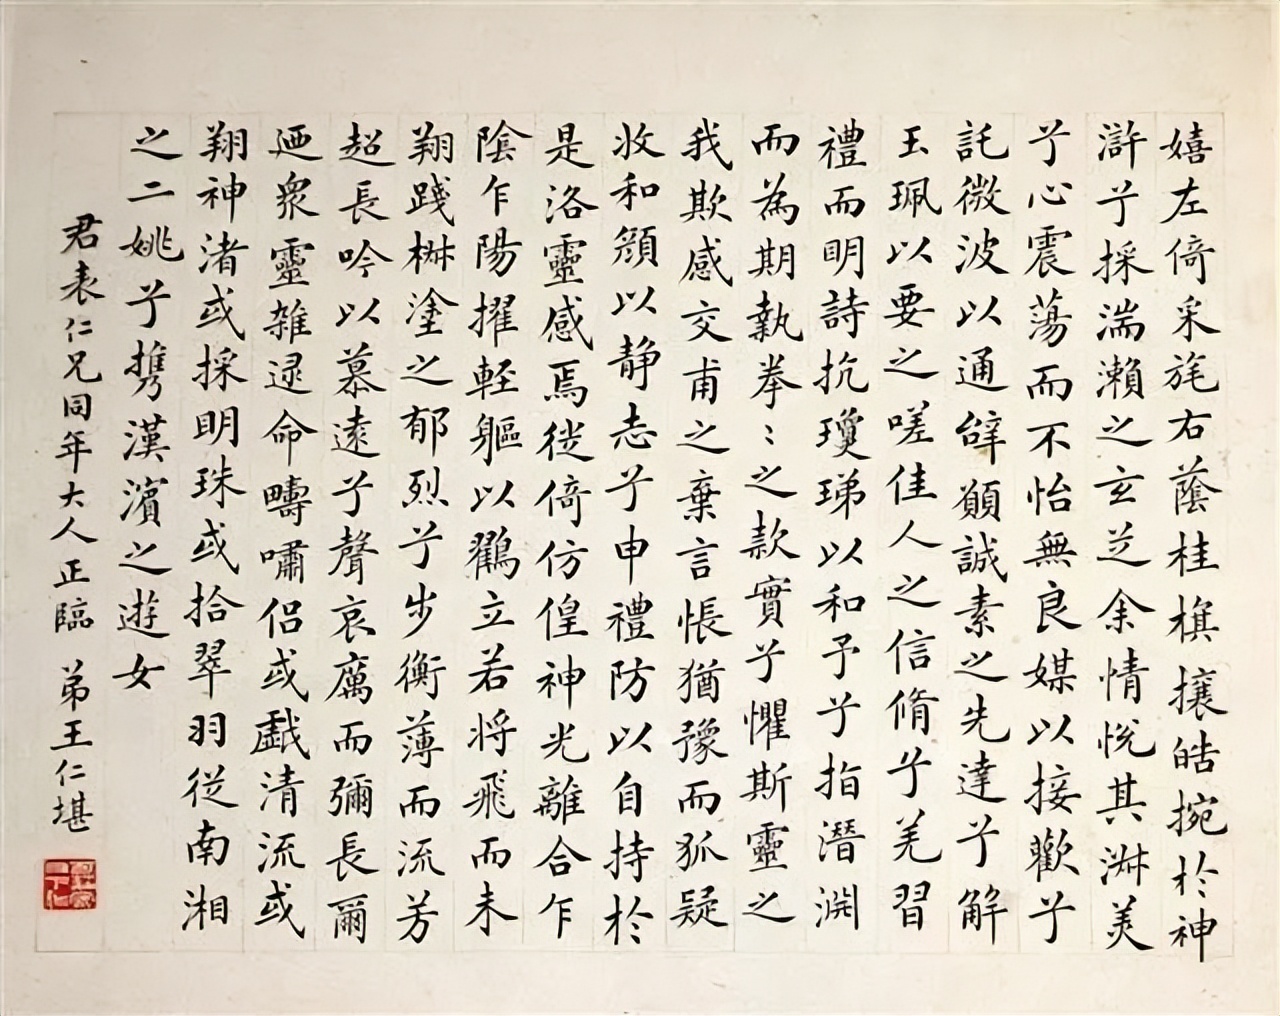 嬉左倚采旄右蔭桂旗攘皓捥於神
滸兮採湍瀨之玄芝余情悅其淋美
兮心震蕩而不怡無良媒以接歡兮
託微波以通辝願誠素之先達兮解
玉珮以要之嗟佳人之信脩兮羌習
禮而明詩抗瓊珶以和予兮指潛淵
而為期執拳〻之款實兮懼斯靈之
我欺感交甫之棄言悵猶豫而狐疑
收和顏以静志兮申禮防以自持於
是洛靈感焉徙倚仿偟神光離合乍
陰乍陽擢輕軀以鸖立若將飛而未
翔踐椒塗之郁烈兮步衡薄而流芳
超長吟以慕遠兮聲哀厲而彌長爾
迺衆靈雜逯命疇嘯侶或戲清流或
翔神渚或採明珠或拾翠羽從南湘
之二姚兮攜漢濱之遊女
君表仁兄同年大人正臨 弟王仁堪